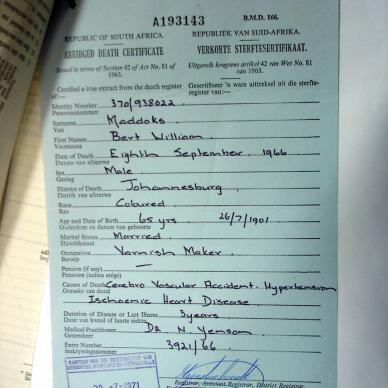 A193143
B.M.D. 166.
REPUBLIC OF SOUTH AFRICA.
REPUBLIEK VAN SUID-AFRIKA.
ABRIDGED DEATH CERTIFICATE
VERKORTE STERFTESERTIFIKAAT.
Issued in terms of Section 42 of Act No. 81 of 1963.
Uitgereik kragtens artikel 42 van Wet No. 81 van 1963.
Certified a true extract from the death register of:—
Gesertifiseer 'n ware uittreksel uit die sterfteregister van:—
Identity Number 370/938022
Persoonsnommer
Surname Maddocks
Van
First Names Bert William
Voorname
Date of Death Eighth September 1966
Datum van afsterwe
Sex Male
Geslag
District of Death Johannesburg
Distrik van afsterwe
Race Coloured
Ras
Age and Date of Birth 65 yrs 26/7/1901
Ouderdom en datum van geboorte
Marital Status Married
Huwelikstaat
Occupation Varnish Maker
Beroep
Pension (if any) —
Pensioen (indien enige)
Causes of Death Cerebro Vascular Accident. Hypertension
Oorsake van dood Ischaemic Heart Disease
Duration of Disease or Last Illness 3 years
Duur van kwaal of laaste siekte
Medical Practitioner Dr. N. Yemson
Geneesheer
Entry Number 3921/66
Inskrywingsnommer
-7-1971
Registrar, Assistant Registrar, District Registrar.